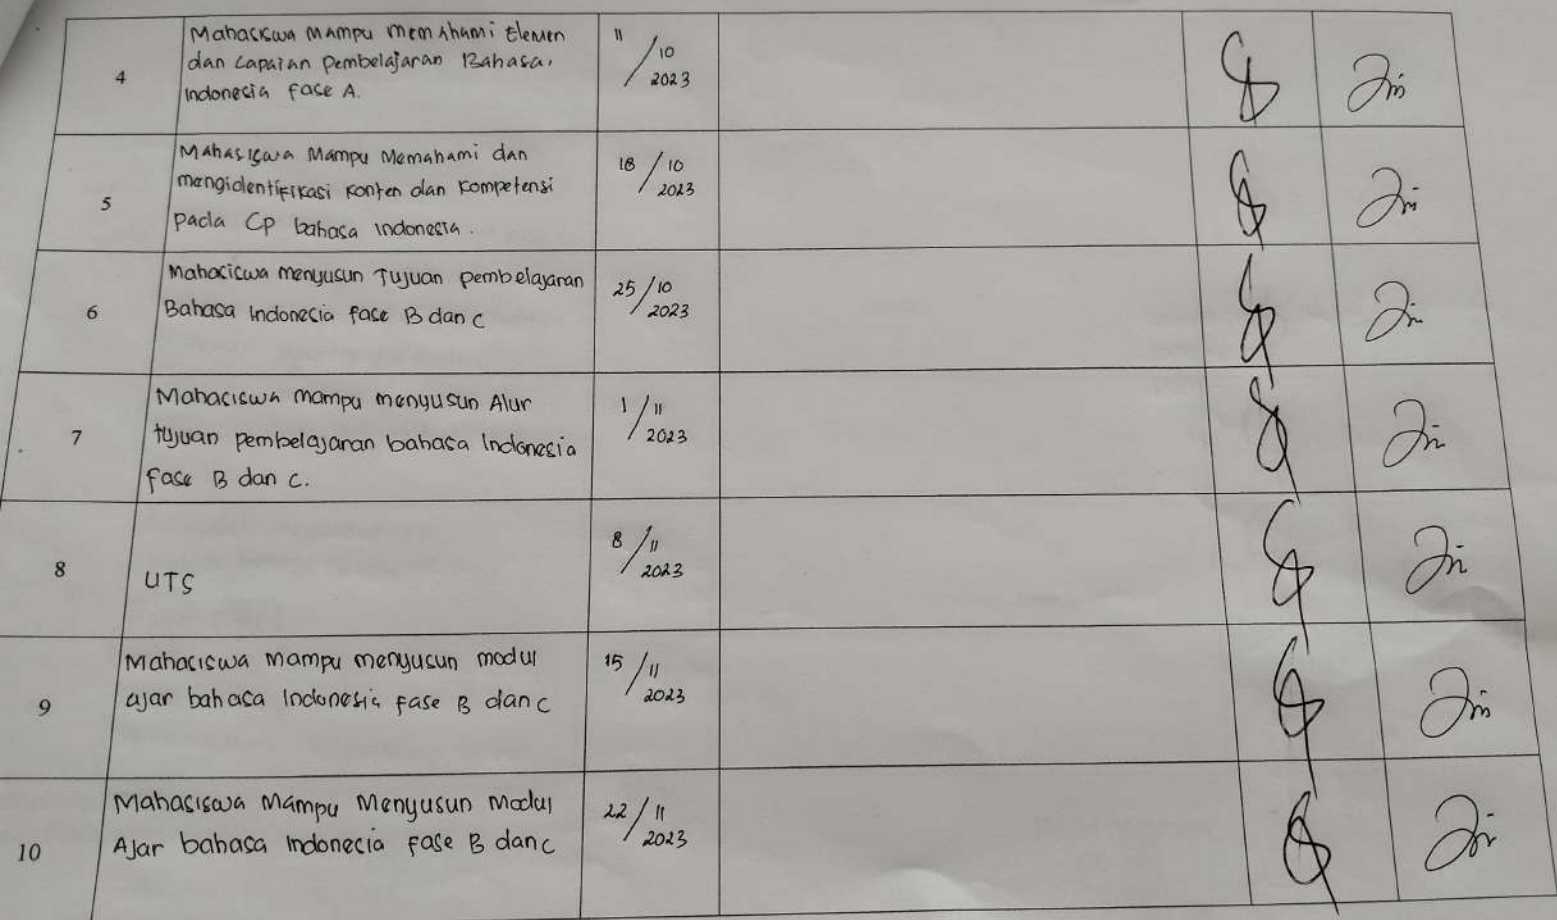 4
Mahasiswa Mampu memahami Elemen
dan Capaian Pembelajaran Bahasa,
Indonesia Fase A.
11/10 2023
5
Mahasiswa Mampu Memahami dan
mengidentifikasi Konten dan Kompetensi
pada CP bahasa Indonesia.
18/10 2023
6
Mahasiswa menyusun Tujuan pembelajaran
Bahasa Indonesia fase B dan C
25/10 2023
7
Mahasiswa mampu menyusun Alur
tujuan pembelajaran bahasa Indonesia
fase B dan C.
1/11 2023
8
UTS
8/11 2023
9
Mahasiswa mampu menyusun modul
ajar bahasa Indonesia Fase B dan C
15/11 2023
10
Mahasiswa Mampu Menyusun Modul
Ajar bahasa Indonesia Fase B dan C
22/11 2023